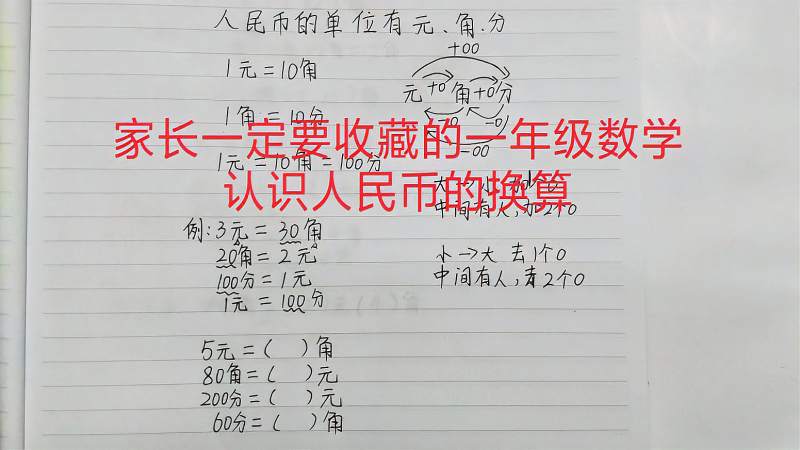 人民币的单位有元、角、分
+00
1元=10角
元 +0 角 +0 分
1角=10分
-0 -0
-00
家长一定要收藏的一年级数学
1元=10角=100分
认识人民币的换算
大→小 加1个0
中间有人,加2个0
例:3元=30角
20角=2元
100分=1元
1元=100分
小→大 去1个0
中间有人,去2个0
5元=( )角
80角=( )元
200分=( )元
60分=( )角